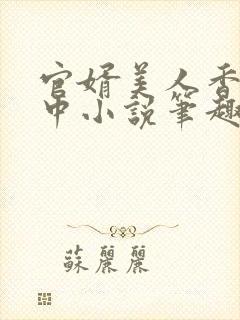 官婿美人香
中小说笔趣
蘇麗麗